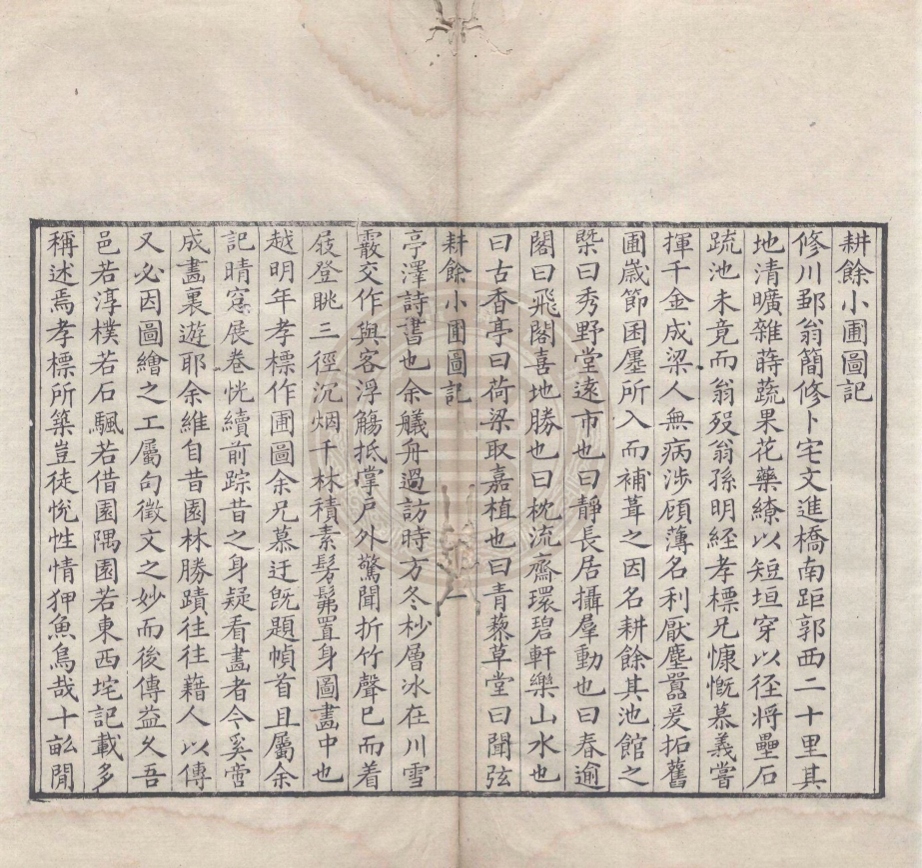 耕餘小圃圖記
修川翁簡修卜宅文進橋南距郭西二十里其
地清曠雜蒔蔬果花藥繚以短垣穿以径将壘石
疏池未竟而翁歿翁孫明經孝標兄慷慨慕義嘗
揮千金成梁人無病涉顧薄名利厭塵囂爰拓舊
圃嵗節囷廛所入而補葺之因名耕餘其池館之
槩曰秀野堂逺市也曰靜長居攝羣動也曰春逾
閣曰飛閣喜地勝也曰枕流齋環碧軒樂山水也
曰古香亭曰荷梁取嘉植也曰青藜草堂曰聞弦
耕餘小圃圖記 一
亭澤詩書也余艤舟過訪時方冬杪層冰在川雪
霰交作與客浮觴抵掌户外驚聞折竹聲已而着
屐登眺三徑沉烟千林積素髣髴置身圖畫中也
越明年孝標作圃圖余兄慕迂旣題幀首且屬余
記晴窓展卷恍續前踪昔之身疑看畫者今奚啻
成畫裏遊耶余維自昔園林勝蹟往往藉人以傳
又必因圖繪之工屬句徵文之妙而後傳益乆吾
邑若淳樸若石颿若借園隅園若東西垞記載多
稱述焉孝標所築豈徒恱性情狎魚鳥哉十畆閒